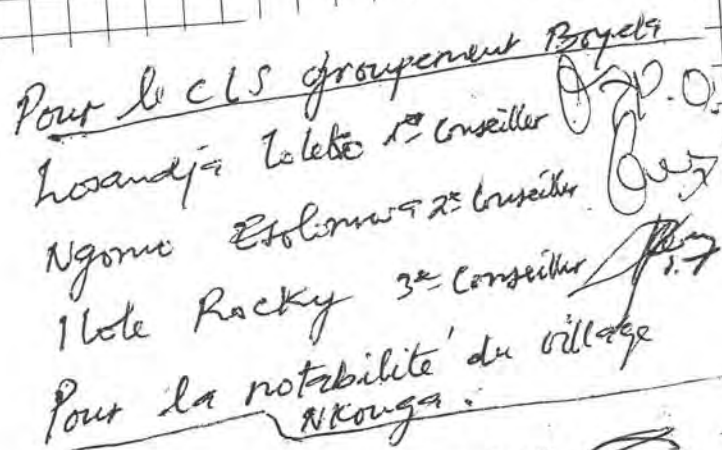 Pour le CLS groupement Boyela
Losandja Loleko 1er Conseiller
Ngomo 2e Conseiller
Ilole Rocky 3e Conseiller
Pour la notabilité du village
Nkouga.